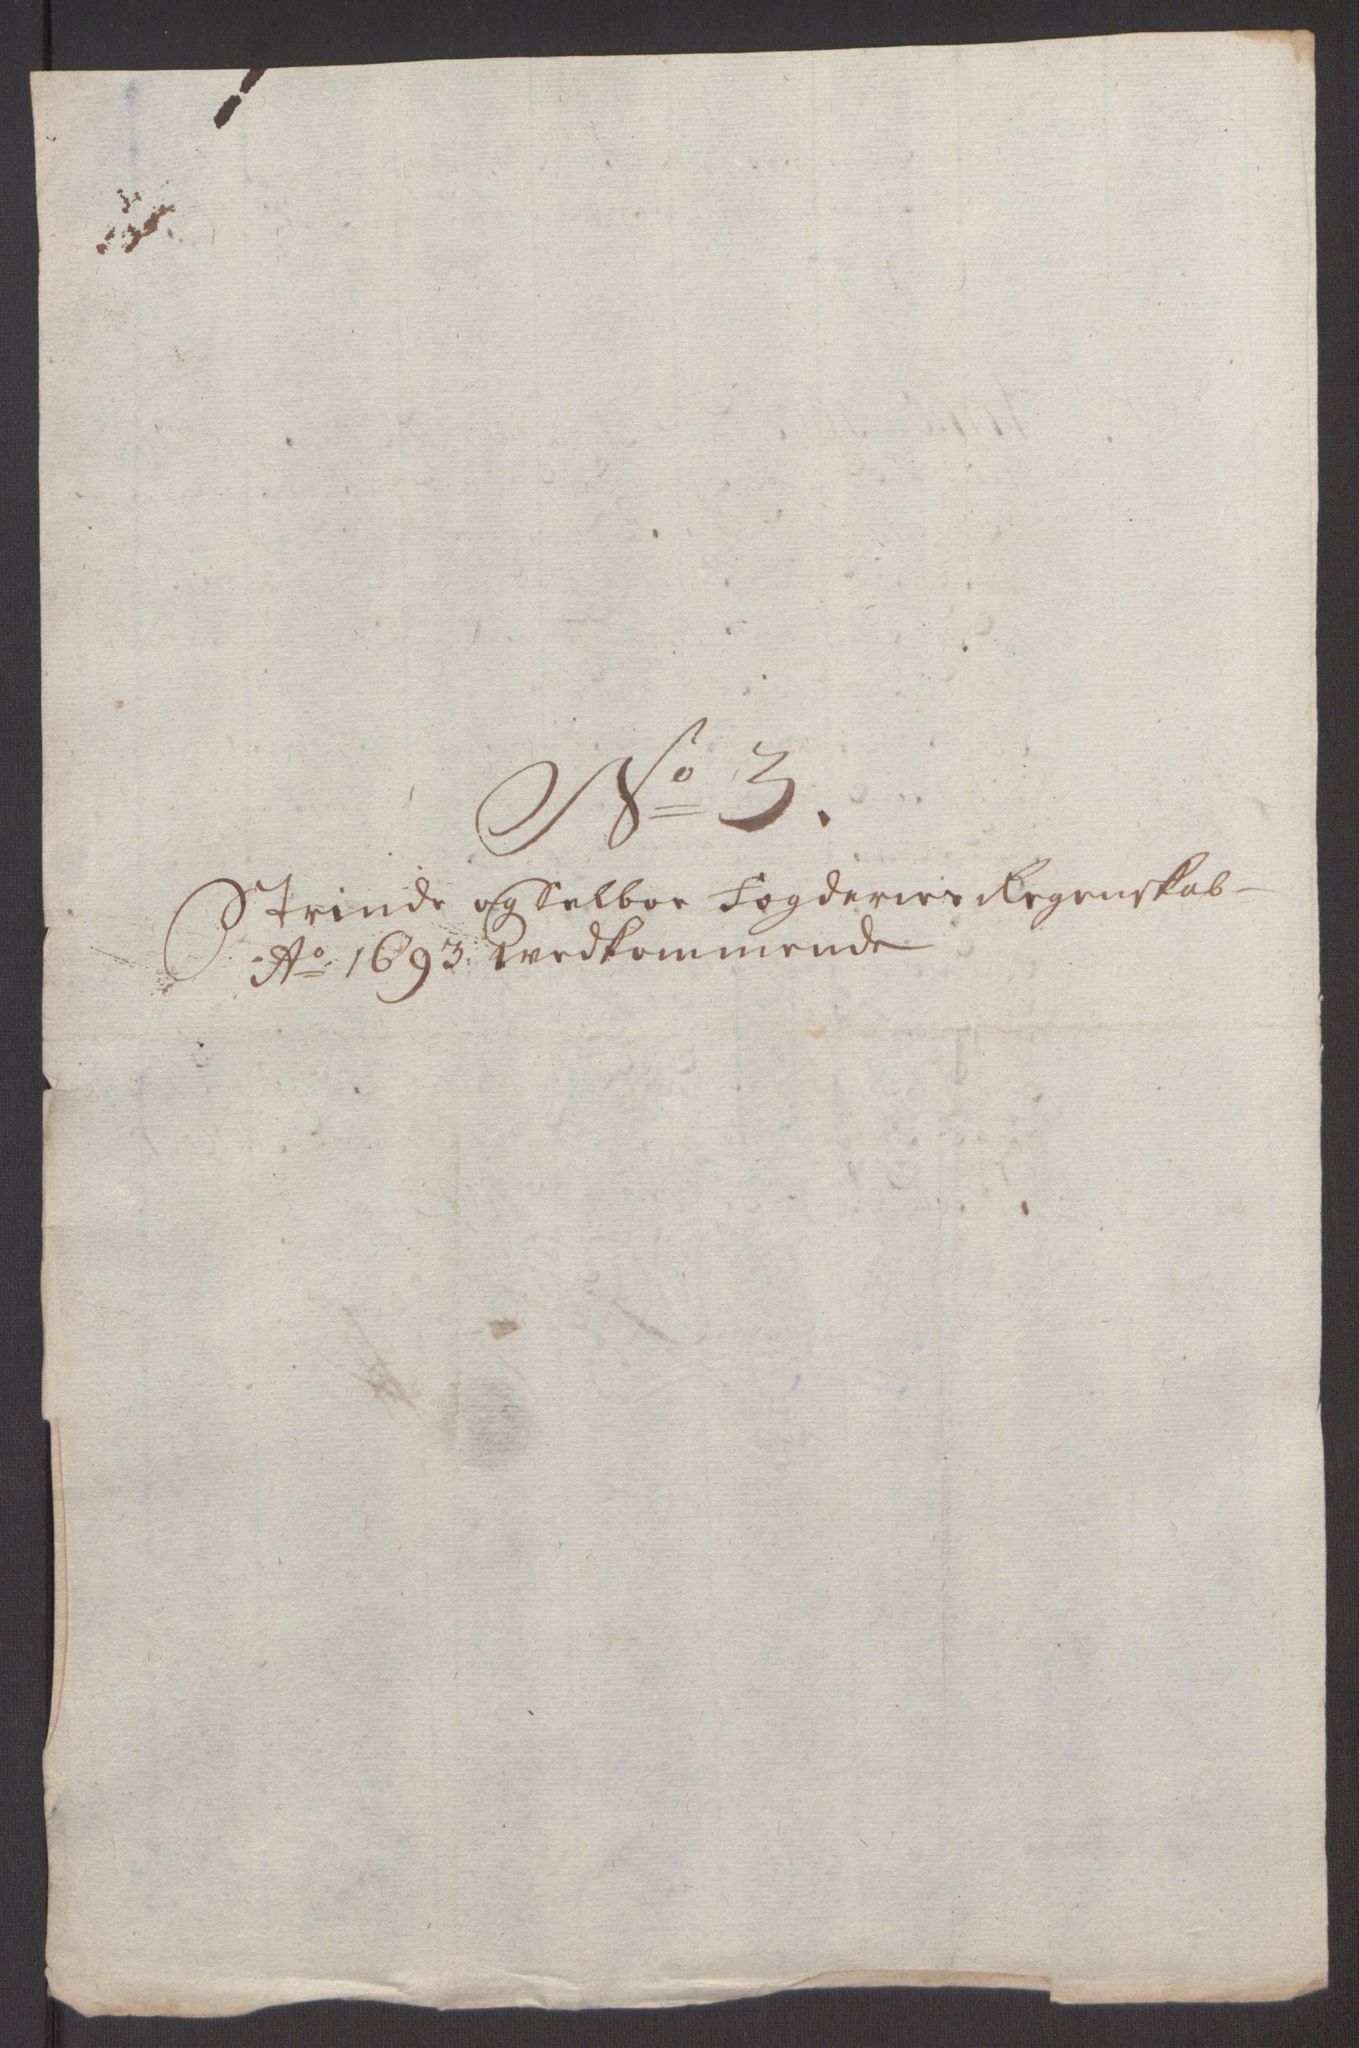 No 3.
Strinde og Selboe Fogderies Regenskab
Ao 1693 wedkommende